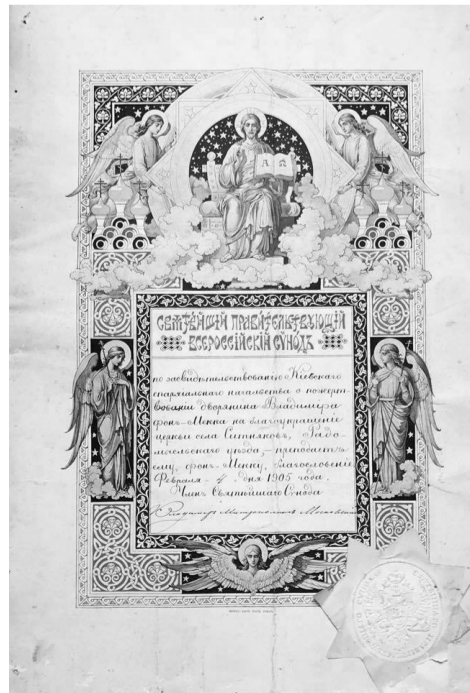 СВЯТѢЙШІЙ ПРАВИТЕЛЬСТВУЮЩІЙ
ВСЕРОССІЙСКІЙ СѴНОДЪ
по засвидѣтельствованію Кіевскаго
епархіальнаго начальства о пожерт-
вованіи дворянина Владиміра
фонъ-Мекка на благоукрашеніе
церкви села Ситняковъ, Радо-
мысльскаго уѣзда, преподаетъ
ему, фонъ-Мекку, благословеніе
Февраля - 4 дня 1905 года.
Членъ Святѣйшаго Сѵнода
Владимиръ Митрополитъ Московскій
А Ω